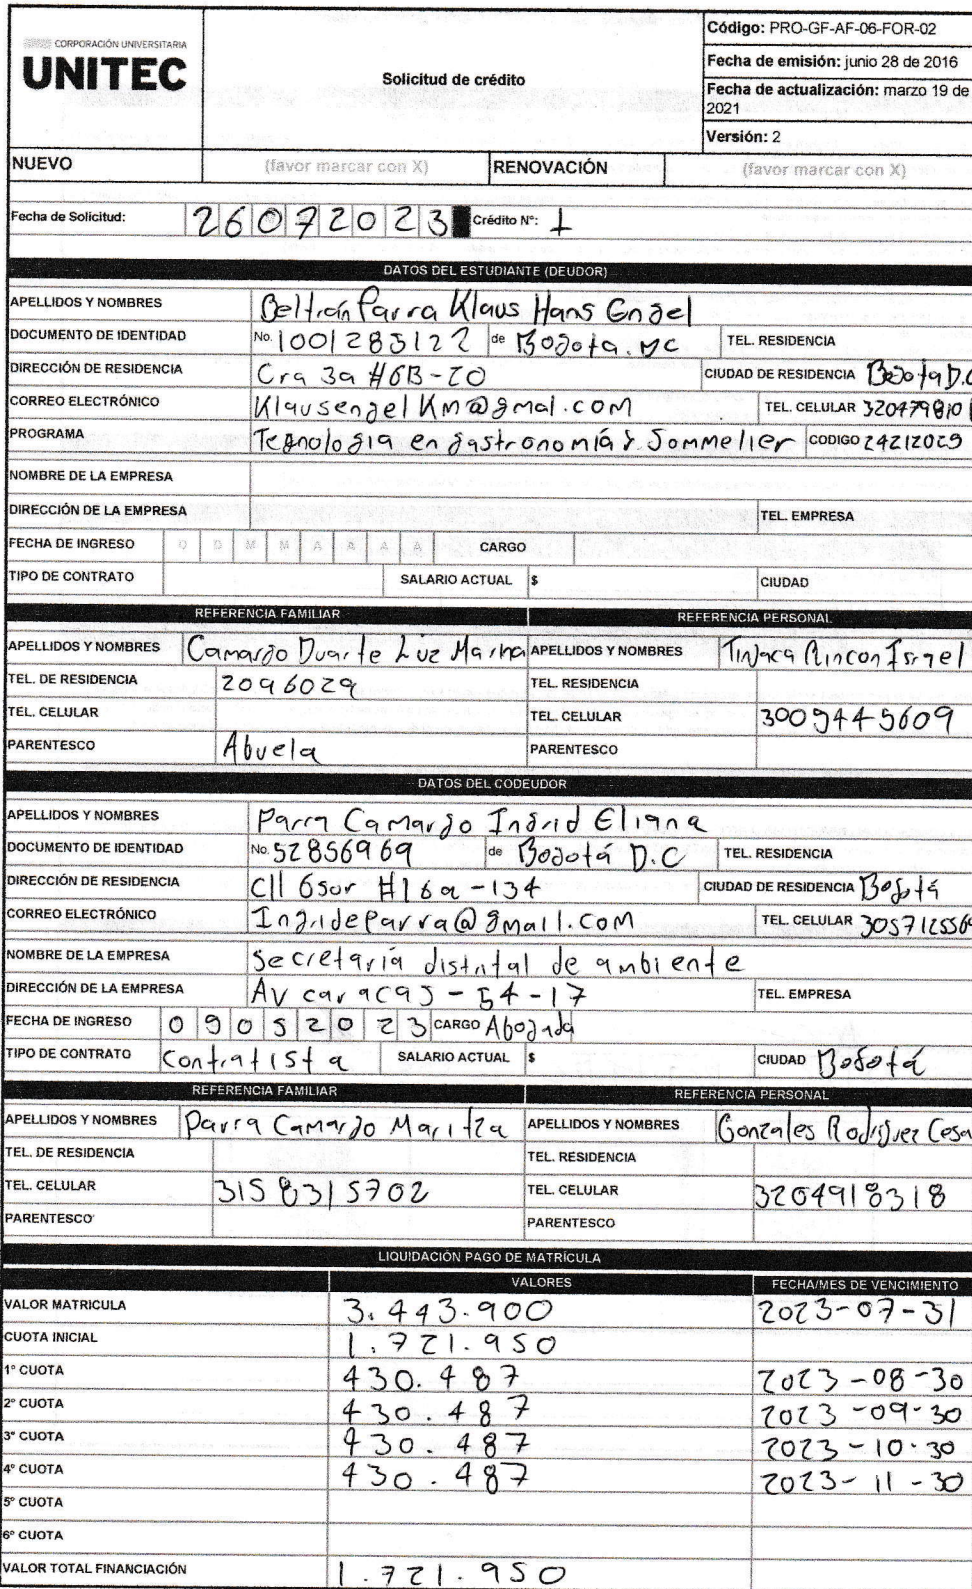 CORPORACIÓN UNIVERSITARIA
UNITEC
Solicitud de crédito
Código: PRO-GF-AF-06-FOR-02
Fecha de emisión: junio 28 de 2016
Fecha de actualización: marzo 19 de
2021
Versión: 2
NUEVO (favor marcar con X) RENOVACIÓN (favor marcar con X)
Fecha de Solicitud: 26072023 Crédito N°: 1
DATOS DEL ESTUDIANTE (DEUDOR)
APELLIDOS Y NOMBRES Beltrán Parra Klaus Hans Engel
DOCUMENTO DE IDENTIDAD No. 1001283122 de Bogota. DC TEL. RESIDENCIA
DIRECCIÓN DE RESIDENCIA Cra 3a #6B-20 CIUDAD DE RESIDENCIA Bogota D.C
CORREO ELECTRÓNICO Klausengel Km@gmal.com TEL. CELULAR 320479810
PROGRAMA Tegnologia en gastronomía y Sommelier CODIGO 24212029
NOMBRE DE LA EMPRESA
DIRECCIÓN DE LA EMPRESA TEL. EMPRESA
FECHA DE INGRESO D D M M A A A A CARGO
TIPO DE CONTRATO SALARIO ACTUAL $ CIUDAD
REFERENCIA FAMILIAR REFERENCIA PERSONAL
APELLIDOS Y NOMBRES Camargo Duarte Luz Marina APELLIDOS Y NOMBRES Tinjaca Rincon Israel
TEL. DE RESIDENCIA 2096029 TEL. RESIDENCIA
TEL. CELULAR TEL. CELULAR 3009445609
PARENTESCO Abuela PARENTESCO
DATOS DEL CODEUDOR
APELLIDOS Y NOMBRES Parra Camargo Ingrid Eliana
DOCUMENTO DE IDENTIDAD No. 52856969 de Bogotá D.C TEL. RESIDENCIA
DIRECCIÓN DE RESIDENCIA Cll 6sur #16a-134 CIUDAD DE RESIDENCIA Bogotá
CORREO ELECTRÓNICO Ingrideparra@gmail.com TEL. CELULAR 305712556
NOMBRE DE LA EMPRESA Secretaría distrital de ambiente
DIRECCIÓN DE LA EMPRESA AV caracas - 54 - 17 TEL. EMPRESA
FECHA DE INGRESO 09052023 CARGO Abogada
TIPO DE CONTRATO Contratista SALARIO ACTUAL $ CIUDAD Bogotá
REFERENCIA FAMILIAR REFERENCIA PERSONAL
APELLIDOS Y NOMBRES Parra Camargo Maritza APELLIDOS Y NOMBRES Gonzales Rodriguez Cesa
TEL. DE RESIDENCIA TEL. RESIDENCIA
TEL. CELULAR 3158315702 TEL. CELULAR 3204918318
PARENTESCO PARENTESCO
LIQUIDACIÓN PAGO DE MATRÍCULA
VALORES FECHA/MES DE VENCIMIENTO
VALOR MATRICULA 3.443.900 2023-07-31
CUOTA INICIAL 1.721.950
1° CUOTA 430.487 2023-08-30
2° CUOTA 430.487 2023-09-30
3° CUOTA 430.487 2023-10-30
4° CUOTA 430.487 2023-11-30
5° CUOTA
6° CUOTA
VALOR TOTAL FINANCIACIÓN 1.721.950